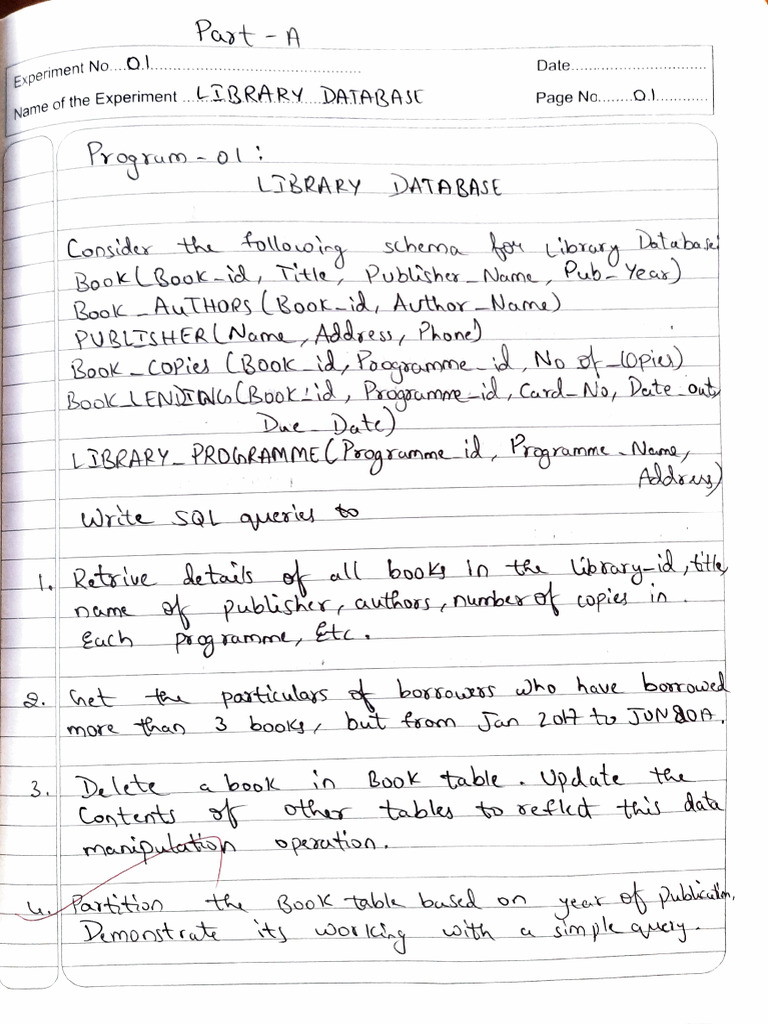 Part - A
Experiment No....01...
Date...
Name of the Experiment ...LIBRARY DATABASE
Page No........01...
Program - 01:
LIBRARY DATABASE
Consider the following schema for Library Database:
Book(Book-id, Title, Publisher_Name, Pub-Year)
Book_AuTHORS (Book_id, Author_Name)
PUBLISHER(Name, Address, Phone)
Book_Copies (Book_id, Programme_id, No of_Copies)
Book_LENDING(Book_id, Programme_id, Card_No, Date_out,
Due_Date)
LIBRARY_PROGRAMME(Programme_id, Programme_Name,
Address)
Write SQL queries to
1. Retrive details of all books in the library-id, title,
name of publisher, authors, number of copies in
Each programme, Etc.
2. Get the particulars of borrowers who have borrowed
more than 3 books, but from Jan 2017 to JUN 2017.
3. Delete a book in Book table. Update the
Contents of other tables to reflect this data
manipulation operation.
4. Partition the Book table based on year of publication.
Demonstrate its working with a simple query.